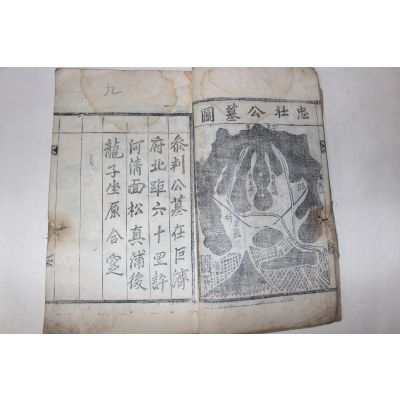 忠壯公墓圖
叅判公墓在巨濟
府北距六十里許
河清面松真浦後
龍子坐原合窆
九